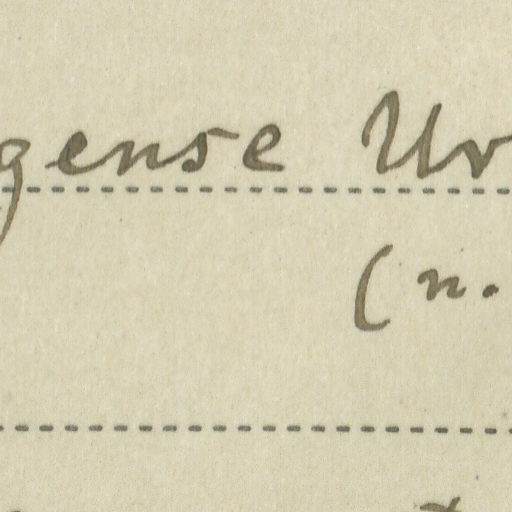 gense Ur
(n.